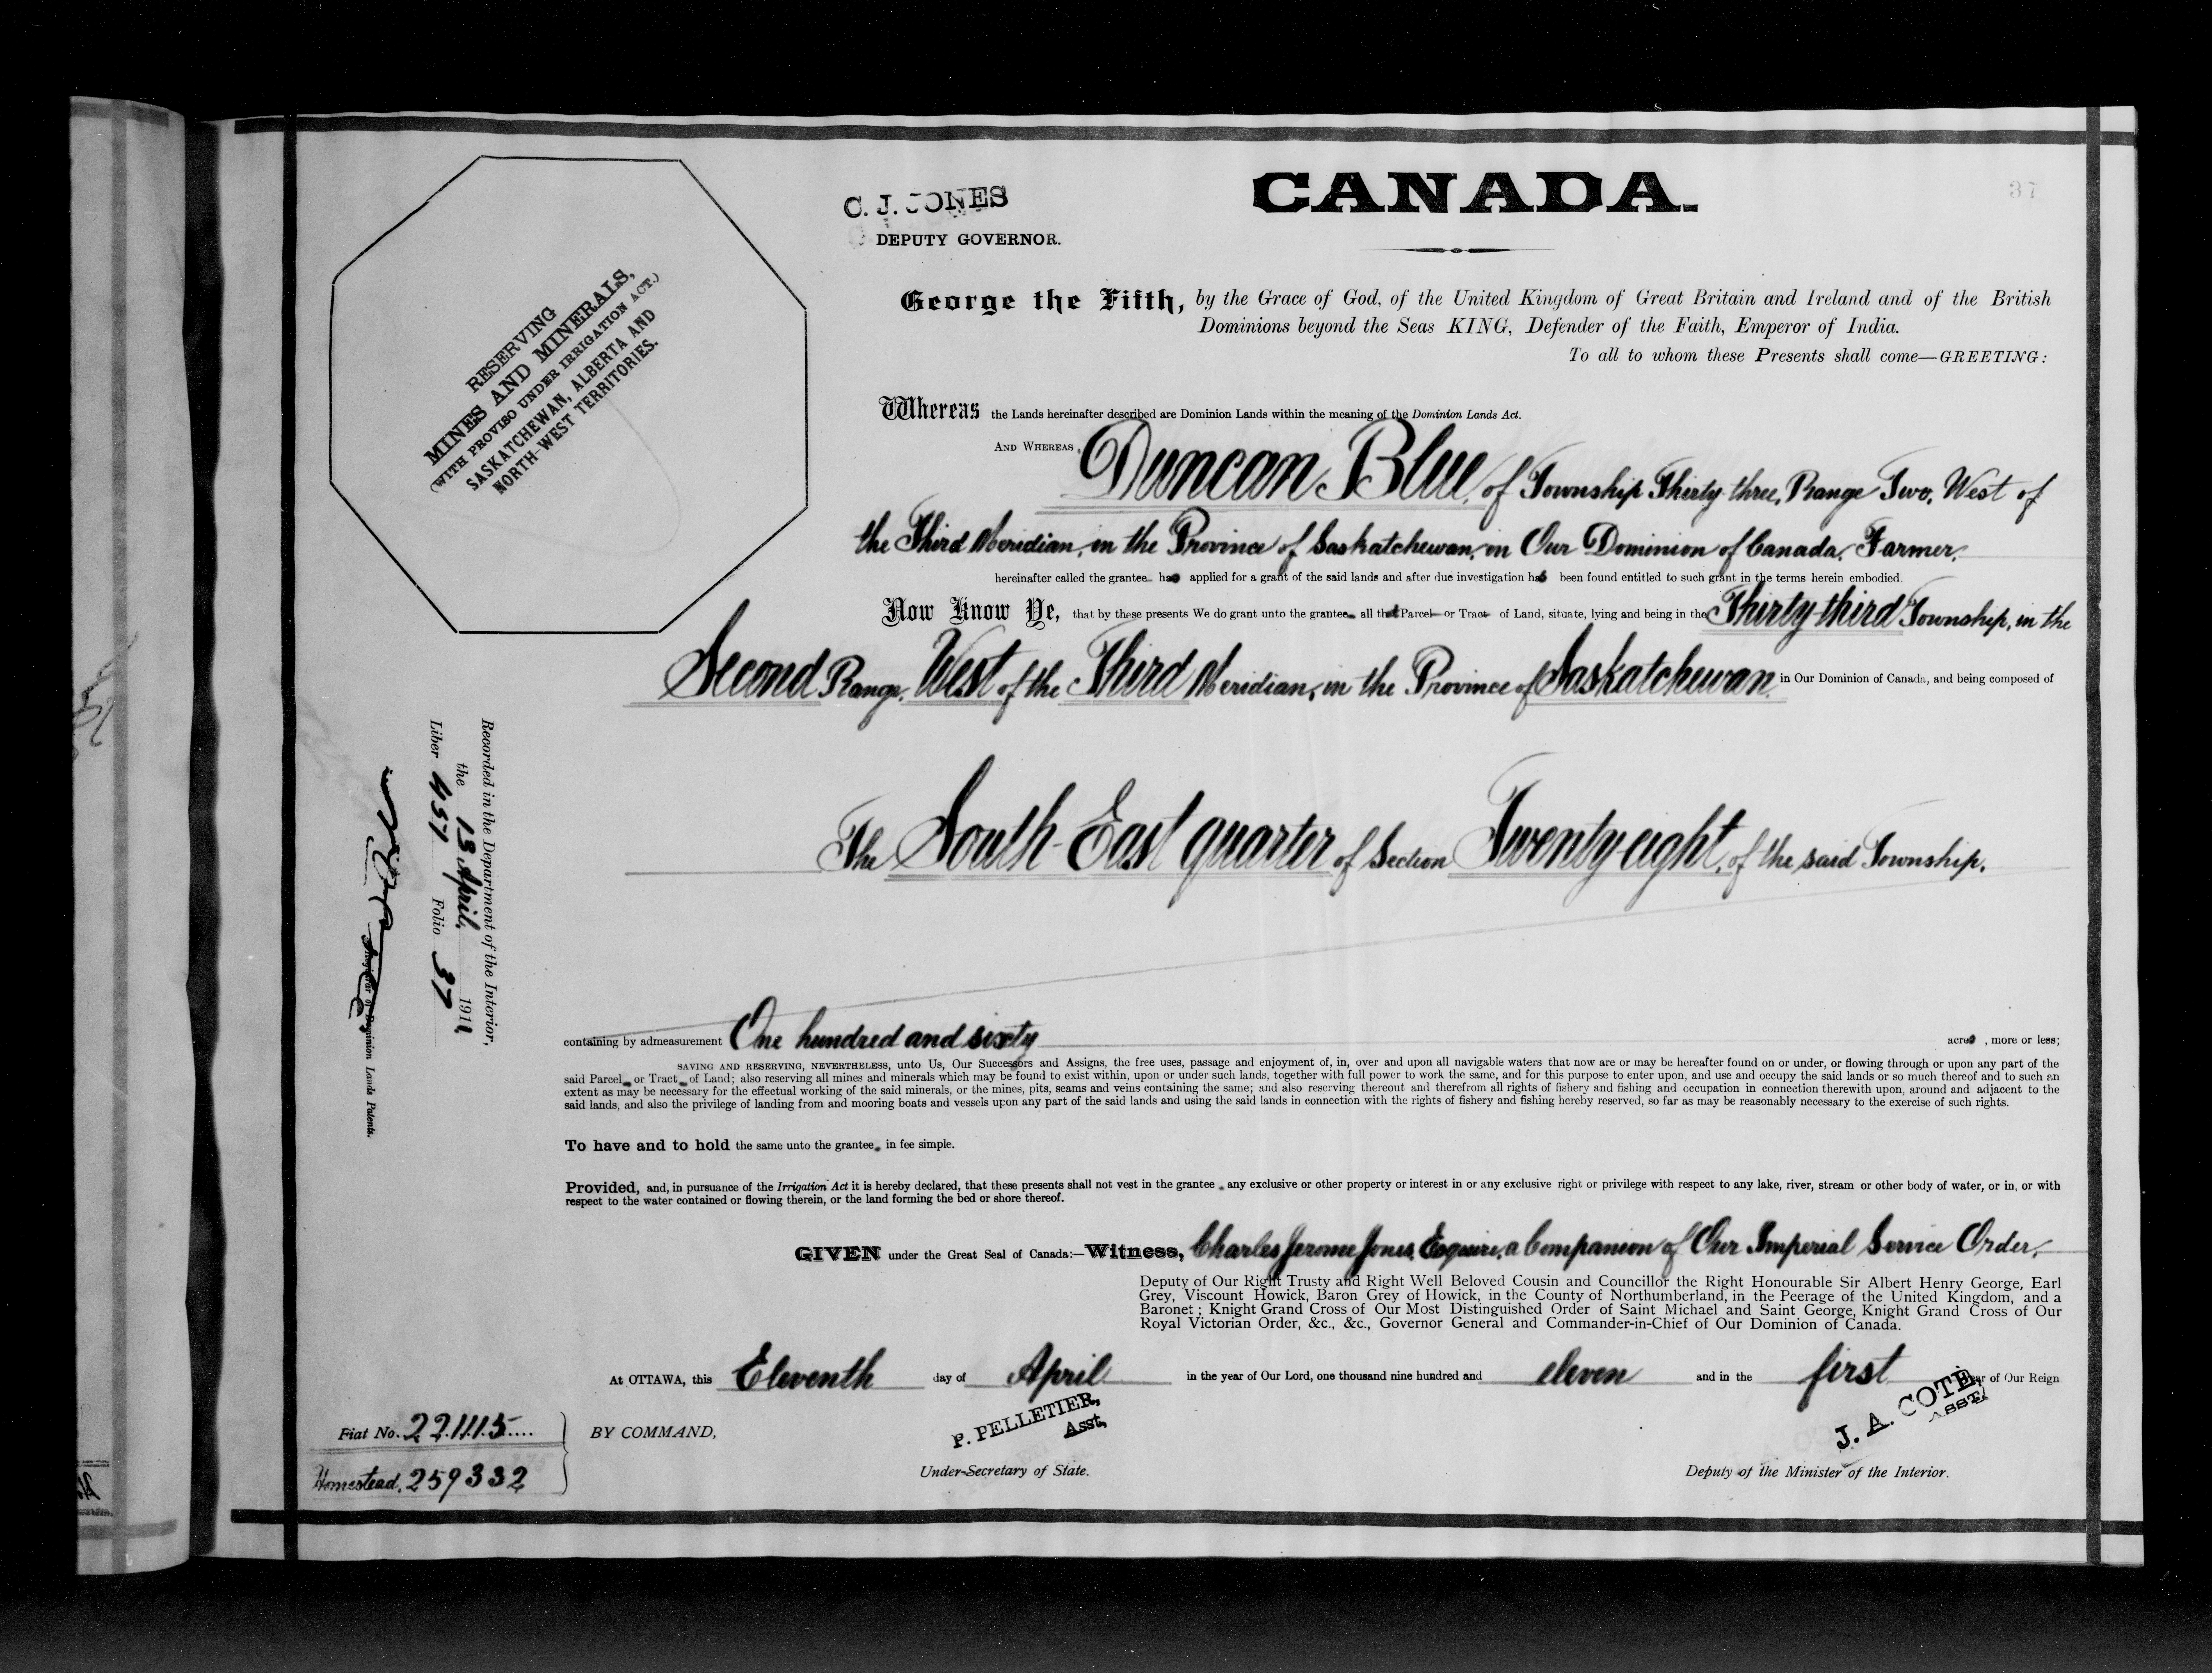 CANADA.
37
C. J. JONES
DEPUTY GOVERNOR.
RESERVING
MINES AND MINERALS,
(WITH PROVISO UNDER IRRIGATION ACT.)
SASKATCHEWAN, ALBERTA AND
NORTH-WEST TERRITORIES.
George the Fifth, by the Grace of God, of the United Kingdom of Great Britain and Ireland and of the British
Dominions beyond the Seas KING, Defender of the Faith, Emperor of India.
To all to whom these Presents shall come—GREETING:
Whereas the Lands hereinafter described are Dominion Lands within the meaning of the Dominion Lands Act.
AND WHEREAS, Duncan Blue, of Township Thirty-three, Range Two, West of
the Third Meridian, in the Province of Saskatchewan, in Our Dominion of Canada, Farmer,
hereinafter called the grantee has applied for a grant of the said lands and after due investigation has been found entitled to such grant in the terms herein embodied.
Now Know Ye, that by these presents We do grant unto the grantee all that Parcel or Tract of Land, situate, lying and being in the Thirty-third Township, in the
Second Range, West of the Third Meridian, in the Province of Saskatchewan, in Our Dominion of Canada, and being composed of
The South-East quarter of Section Twenty-eight, of the said Township,
containing by admeasurement One hundred and sixty acres, more or less;
SAVING AND RESERVING, NEVERTHELESS, unto Us, Our Successors and Assigns, the free uses, passage and enjoyment of, in, over and upon all navigable waters that now are or may be hereafter found on or under, or flowing through or upon any part of the
said Parcel or Tract of Land; also reserving all mines and minerals which may be found to exist within, upon or under such lands, together with full power to work the same, and for this purpose to enter upon, and use and occupy the said lands or so much thereof and to such an
extent as may be necessary for the effectual working of the said minerals, or the mines, pits, seams and veins containing the same; and also reserving thereout and therefrom all rights of fishery and fishing and occupation in connection therewith upon, around and adjacent to the
said lands, and also the privilege of landing from and mooring boats and vessels upon any part of the said lands and using the said lands in connection with the rights of fishery and fishing hereby reserved, so far as may be reasonably necessary to the exercise of such rights.
To have and to hold the same unto the grantee, in fee simple.
Provided, and, in pursuance of the Irrigation Act it is hereby declared, that these presents shall not vest in the grantee, any exclusive or other property or interest in or any exclusive right or privilege with respect to any lake, river, stream or other body of water, or in, or with
respect to the water contained or flowing therein, or the land forming the bed or shore thereof.
GIVEN under the Great Seal of Canada:—Witness, Charles Jerome Jones, Esquire, a Companion of Our Imperial Service Order,
Deputy of Our Right Trusty and Right Well Beloved Cousin and Councillor the Right Honourable Sir Albert Henry George, Earl
Grey, Viscount Howick, Baron Grey of Howick, in the County of Northumberland, in the Peerage of the United Kingdom, and a
Baronet; Knight Grand Cross of Our Most Distinguished Order of Saint Michael and Saint George, Knight Grand Cross of Our
Royal Victorian Order, &c., &c., Governor General and Commander-in-Chief of Our Dominion of Canada.
At OTTAWA, this Eleventh day of April in the year of Our Lord, one thousand nine hundred and eleven and in the first year of Our Reign
BY COMMAND,
P. PELLETIER,
Asst,
Under-Secretary of State.
J. A. COTÉ,
ASST
Deputy of the Minister of the Interior.
Fiat No. 221115
Homestead, 259332
Recorded in the Department of the Interior,
the 13 April, 1911
Liber 457 Folio 37
Registrar of Dominion Lands Patents.